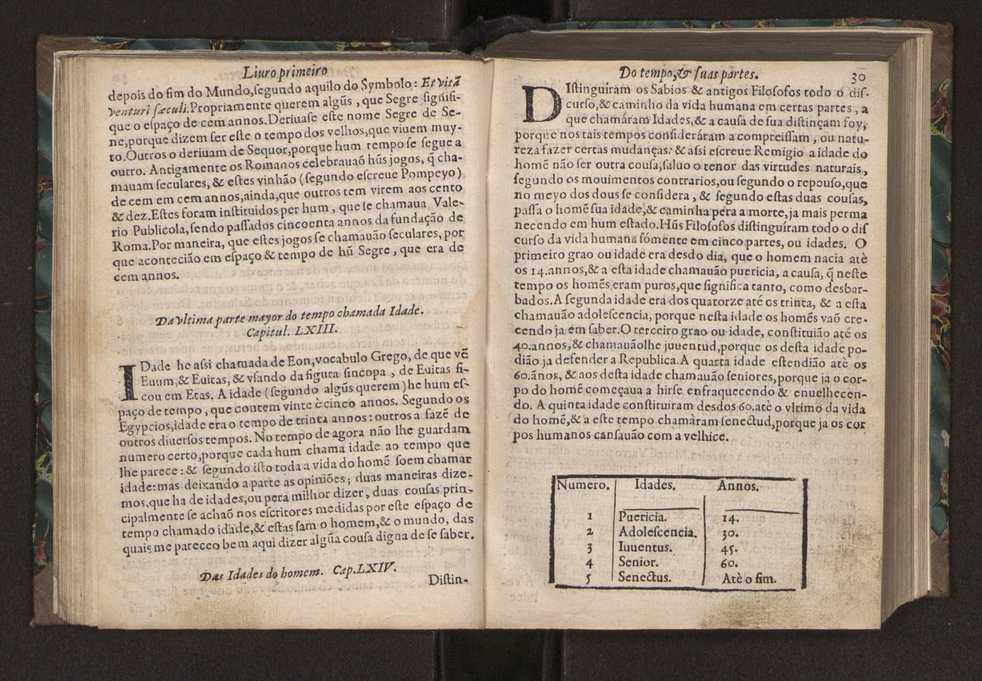 Liuro primeiro
depois do fim do Mundo,segundo aquilo do Symbolo: Et vitã
venturi sæculi.Propriamente querem algũs, que Segre signifi-
que o espaço de cem annos.Deriuase este nome Segre de Se-
ne,porque dizem ser este o tempo dos velhos,que viuem muy-
to.Outros o deriuam de Sequor,porque hum tempo se segue a
outro. Antigamente os Romanos celebrauaõ hũs jogos, q̃ cha-
mauam seculares, & estes vinhão (segundo escreue Pompeyo)
de cem em cem annos,ainda,que outros tem virem aos cento
& dez.Estes foram instituidos per hum, que se chamaua Vale-
rio Publicola,sendo passados cincoenta annos da fundação de
Roma.Por maneira, que estes jogos se chamauão seculares, por
que acontecião em espaço & tempo de hũ Segre, que era de
cem annos.
Da vltima parte mayor do tempo chamada Idade.
Capitul. LXIII.
IDade he assi chamada de Eon,vocabulo Grego, de que vẽ
Euum,& Euitas, & vsando da figura sincopa, de Euitas fi-
cou em Etas. A idade (segundo algũs querem) he hum es-
paço de tempo, que contem vinte & cinco annos. Segundo os
Egypcios,idade era o tempo de trinta annos: outros a fazẽ de
outros diuersos tempos. No tempo de agora não lhe guardam
numero certo,porque cada hum chama idade ao tempo que
lhe parece: & segundo isto toda a vida do homẽ soem chamar
idade:mas deixando a parte as opiniões; duas maneiras dize-
mos,que ha de idades,ou pera milhor dizer, duas cousas prin-
cipalmente se achaõ nos escritores medidas por este espaço de
tempo chamado idade,& estas sam o homem,& o mundo, das
quais me pareceo bem aqui dizer algũa cousa digna de se saber.
Das Idades do homem. Cap.LXIV.
Distin-
Do tempo,& suas partes. 30
DIstinguiram os Sabios & antigos Filosofos todo o dis-
curso,& caminho da vida humana em certas partes, a
que chamáram Idades,& a causa de sua distinçam foy,
porque nos tais tempos consideráram a compreissam, ou natu-
reza fazer certas mudanças: & assi escreue Remigio a idade do
homẽ não ser outra cousa,saluo o tenor das virtudes naturais,
segundo os mouimentos contrarios,ou segundo o repouso,que
no meyo dos dous se considera, & segundo estas duas cousas,
passa o homẽ sua idade,& caminha pera a morte,ja mais perma
necendo em hum estado.Hũs Filosofos distinguíram todo o dis
curso da vida humana sómente em cinco partes, ou idades. O
primeiro grao ou idade era desdo dia, que o homem nacia atè
os 14.annos,& a esta idade chamauão puericia, a causa, q̃ neste
tempo os homẽs eram puros,que significa tanto, como desbar-
bados.A segunda idade era dos quatorze até os trinta, & a esta
chamauão adolescencia, porque nesta idade os homẽs vaõ cre-
cendo ja em saber.O terceiro grao ou idade, constituião até os
40.annos,& chamauãolhe juuentud,porque os desta idade po-
dião ja defender a Republica.A quarta idade estendião atè os
60.ãnos, & aos desta idade chamauão seniores,porque ja o cor-
po do homẽ começaua a hirse enfraquecendo & enuelhecen-
do. A quinta idade constituiram desdos 60.atè o vltimo da vida
do homẽ,& a este tempo chamàram senectud,porque ja os cor
pos humanos cansauão com a velhice.
Numero. Idades. Annos.
1 Puericia. 14.
2 Adolescencia. 30.
3 Iuuentus. 45.
4 Senior. 60.
5 Senectus. Atè o fim.